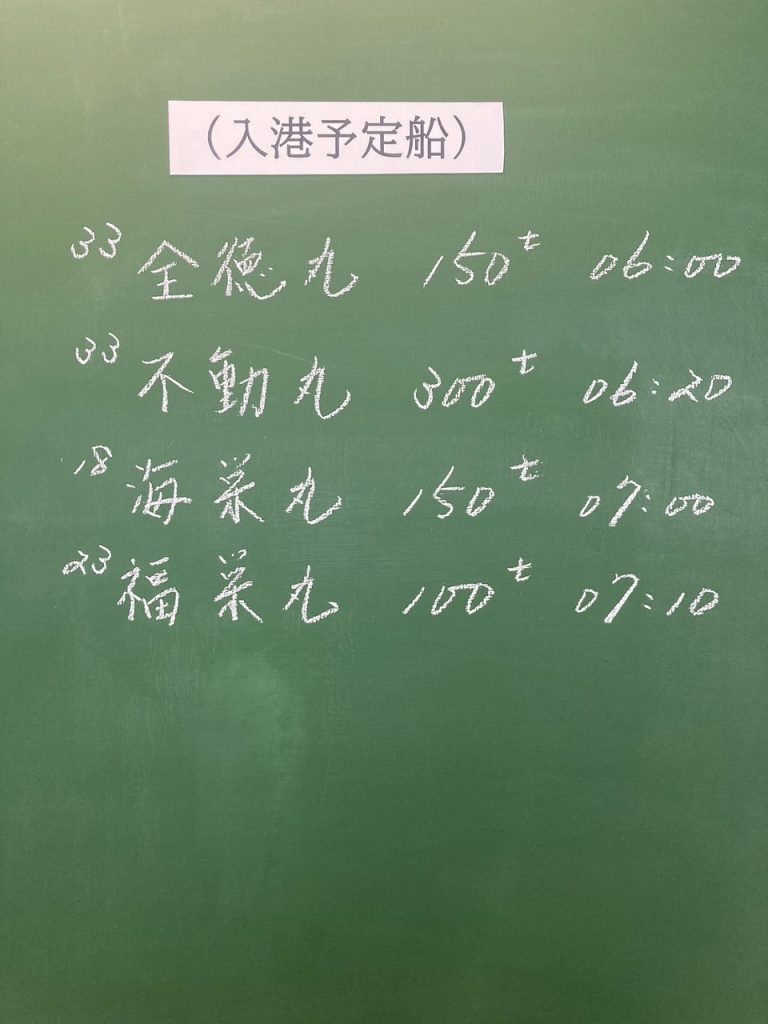 （入港予定船）
33 全徳丸 150t 06:00
33 不動丸 300t 06:20
18 海栄丸 150t 07:00
23 福栄丸 100t 07:10